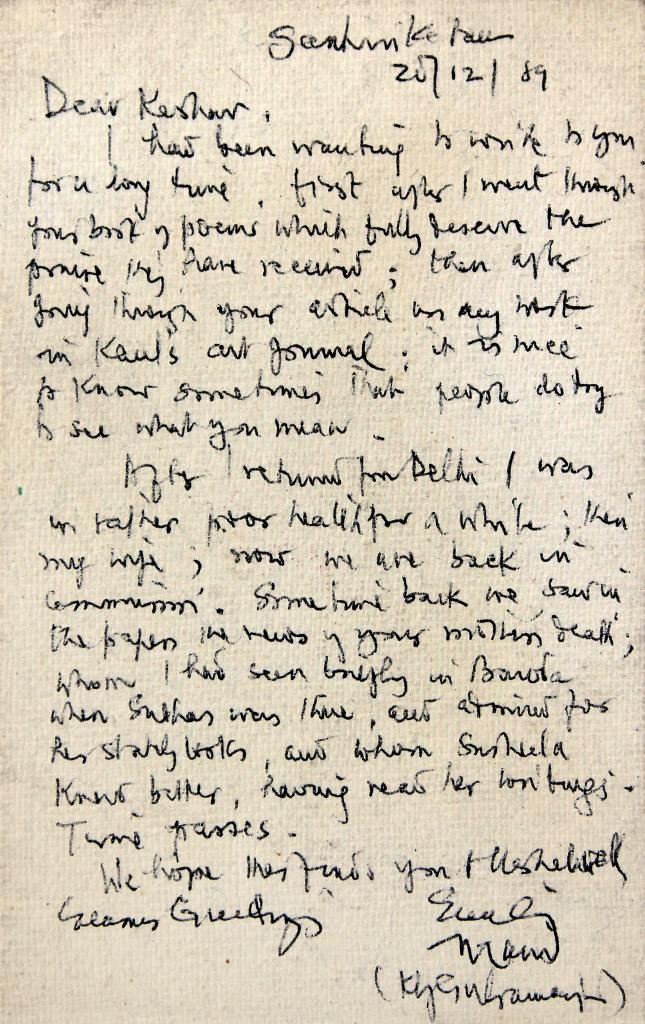 Santiniketan
20/12/89
Dear Keshav,
I had been wanting to write to you
for a long time, first after I went through
your book of poems which fully deserve the
praise they have received; then after
going through your article on my work
in Kaul's art journal; it is nice
to know sometimes that people do try
to see what you mean.
After I returned from Delhi I was
in rather poor health for a while; then
my wife; now we are back in
commission. Sometime back we saw in
the papers the news of your mother's death;
whom I had seen briefly in Baroda
when Subhas was there, and admired for
her stately looks, and whom Susheela
knew better, having read her writings.
Time passes.
We hope this finds you & well
Seasons Greetings
Mani
(KG Subramanyan)